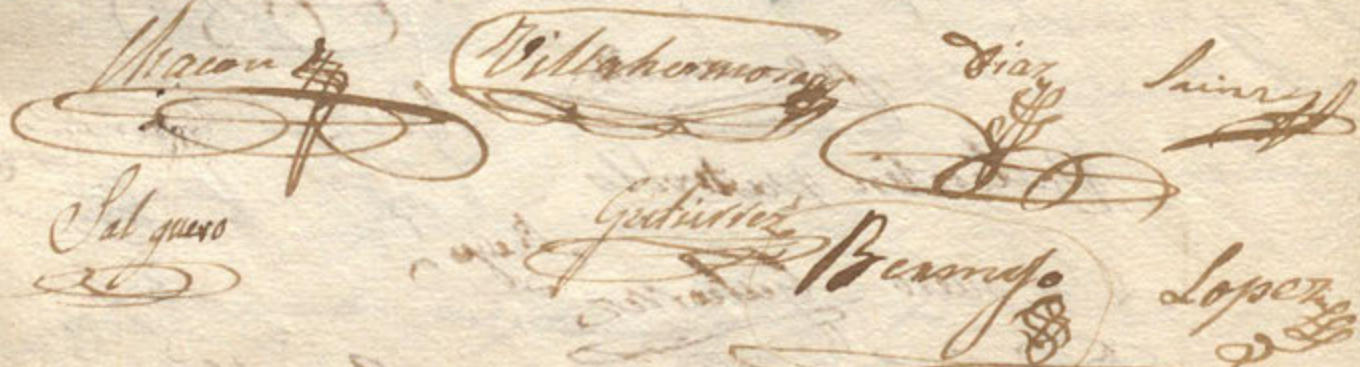 Chacon Villahermosa Diaz Sainz
Salguero Gutierrez Bermejo Lopez